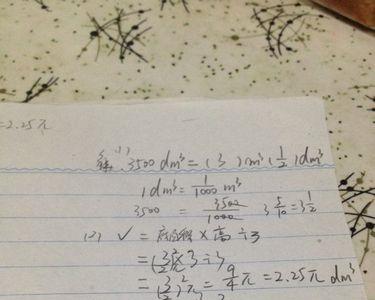 =2.25元
解: (1) 3500 dm³ = (3) m³ (1/2) dm³
1 dm³ = 1/1000 m³
3500 = 3500/1000 3 5/10 = 3 1/2
(2) V = 底面积 × 高 ÷ 3
÷ 3
= (3/2)²π = 9/4 π = 2.25π dm³